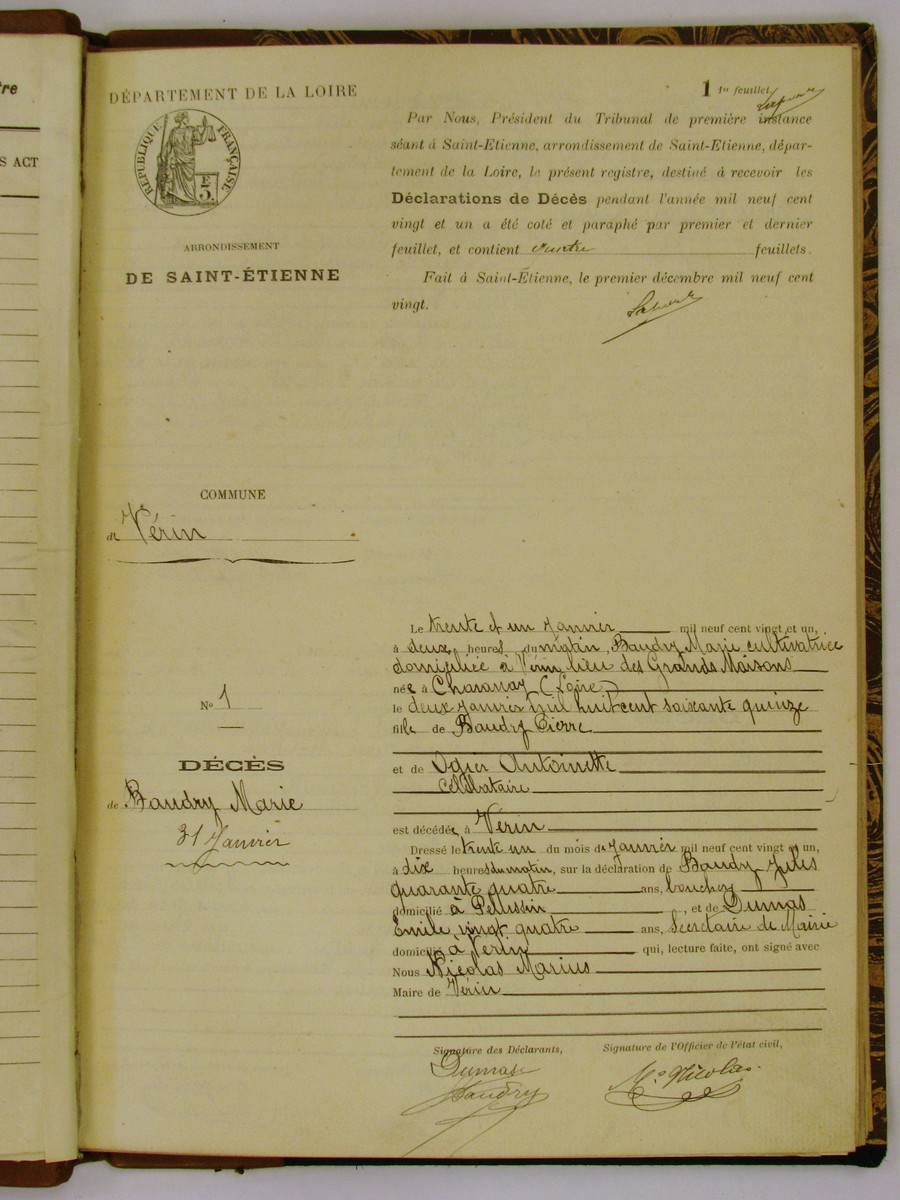 tre
S ACT
DÉPARTEMENT DE LA LOIRE
RÉPUBLIQUE FRANÇAISE
E
5.
ARRONDISSEMENT
DE SAINT-ÉTIENNE
1 1er feuillet
Par Nous, Président du Tribunal de première instance
séant à Saint-Etienne, arrondissement de Saint-Etienne, dépar-
tement de la Loire, le présent registre, destiné à recevoir les
Déclarations de Décès pendant l'année mil neuf cent
vingt et un a été coté et paraphé par premier et dernier
feuillet, et contient feuillets.
Fait à Saint-Étienne, le premier décembre mil neuf cent
vingt.
COMMUNE
de Vérin
No 1
DÉCÈS
de Baudry Marie
31 Janvier
Le trente et un Janvier mil neuf cent vingt et un,
à deux heures du matin, Baudry Marie cultivatrice
domiciliée à Vérin lieu des Grands Maisons
née à (Loire)
le deux Janvier mil huit cent soixante quinze
fille de Baudry Pierre
et de Ogier Antoinette
Célibataire
est décédée à Vérin
Dressé le trente un du mois de Janvier mil neuf cent vingt et un,
à dix heures du matin, sur la déclaration de Baudry Jules
quarante quatre ans, boucher
domicilié à Pélussin, et de Dumas
Emile, vingt quatre ans, Secrétaire de Mairie
domicilié à Vérin qui, lecture faite, ont signé avec
Nous Nicolas Marius
Maire de Vérin
Signature des Déclarants,
Signature de l'Officier de l'état civil,
Dumas
Baudry
Ms Nicolas.